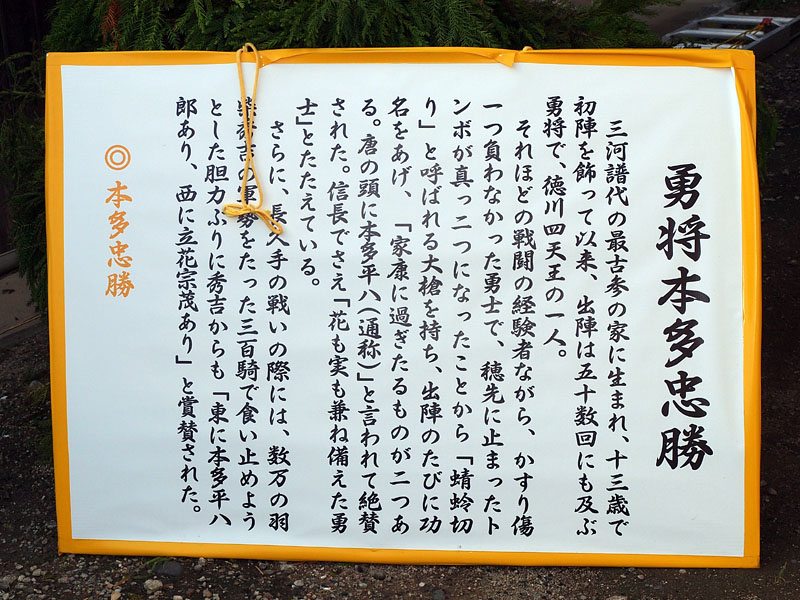 勇将本多忠勝
三河譜代の最古参の家に生まれ、十三歳で
初陣を飾って以来、出陣は五十数回にも及ぶ
勇将で、徳川四天王の一人。
それほどの戦闘の経験者ながら、かすり傷
一つ負わなかった勇士で、穂先に止まったト
ンボが真っ二つになったことから「蜻蛉切
り」と呼ばれる大槍を持ち、出陣のたびに功
名をあげ、「家康に過ぎたるものが二つあ
る。唐の頭に本多平八(通称)」と言われて絶賛
された。信長でさえ「花も実も兼ね備えた勇
士」とたたえている。
さらに、長久手の戦いの際には、数万の羽
柴秀吉の軍勢をたった三百騎で食い止めよう
とした胆力ぶりに秀吉からも「東に本多平八
郎あり、西に立花宗茂あり」と賞賛された。
◎本多忠勝